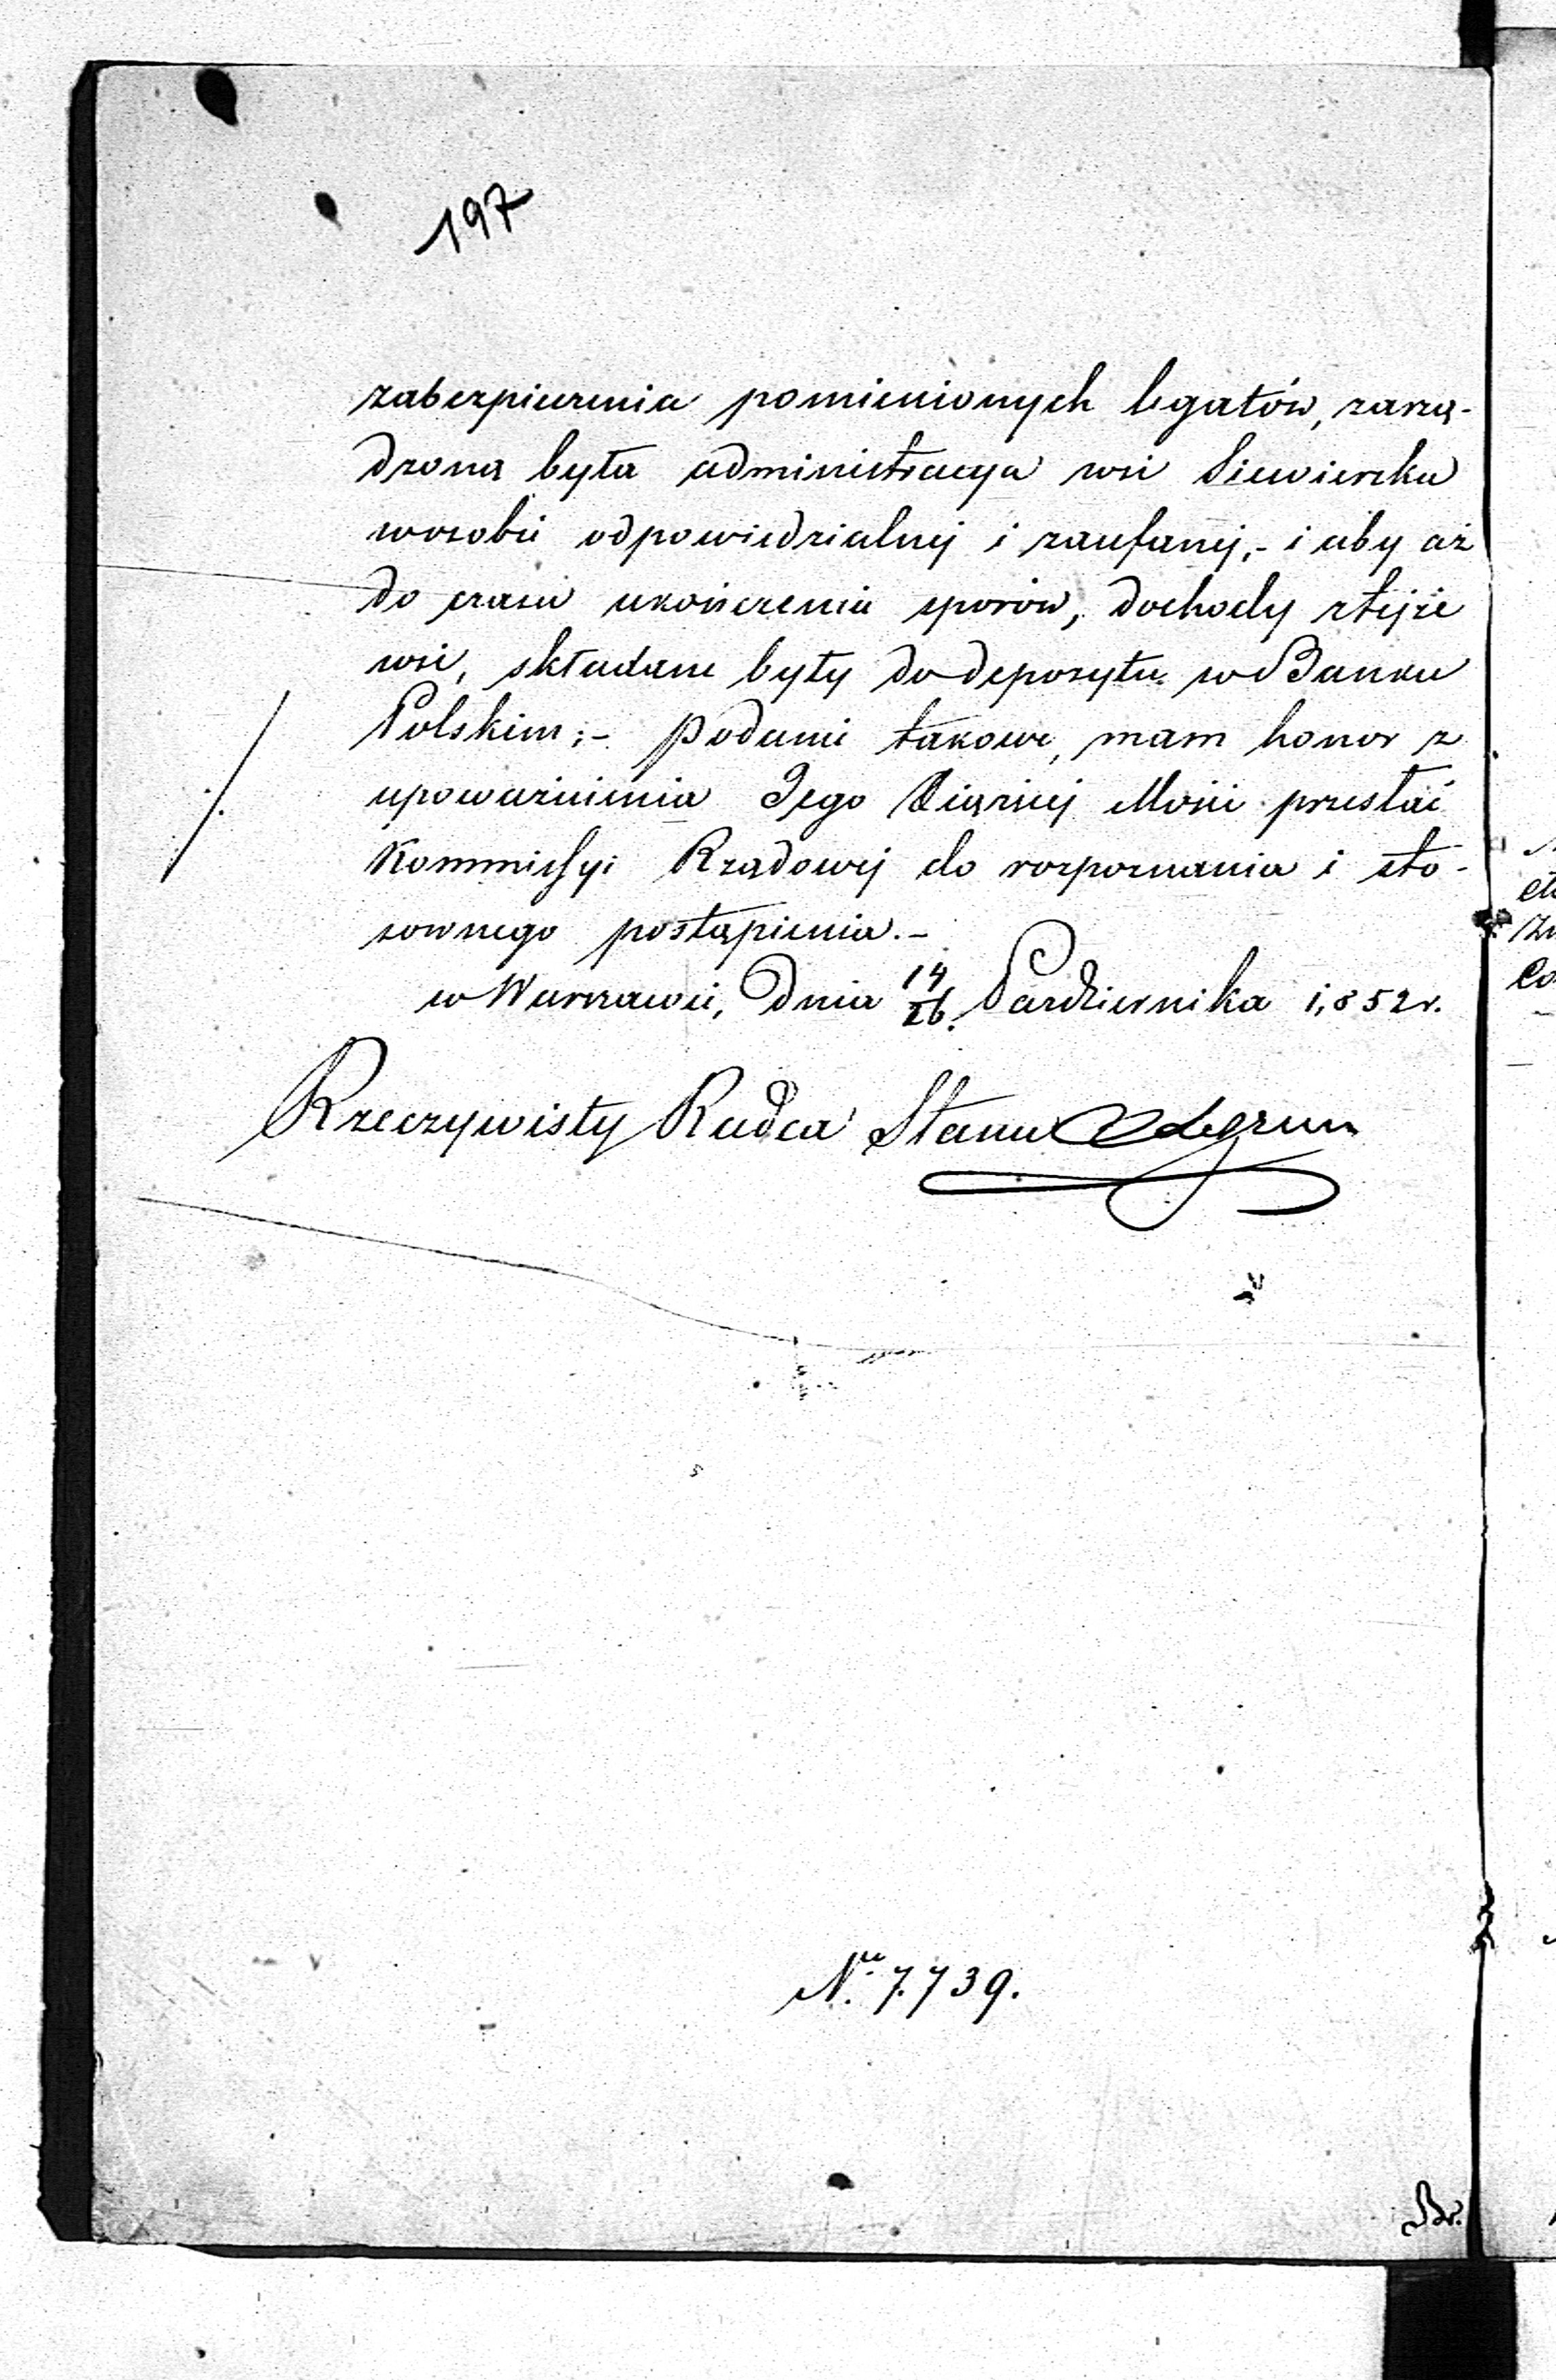 197
zabezpieczenia pomienionych legatów, zarzą-
dzoną była administracya wsi Siewierska
wosobie odpowiedzialnej i zaufanej,- i aby aż
do czasu ukończenia sporów, dochody ztejże
wsi, składane były do depozytu w Banku
Polskim;- Podanie takowe, mam honor z
upoważnienia Jego Xiążęcej Mości przesłać
Kommissyi Rządowej do rozpoznania i sto-
sownego postąpienia.-
w Warszawie, Dnia 14/26. Października 1,852 r.
Rzeczywisty Radca Stanu
N. 7.739.